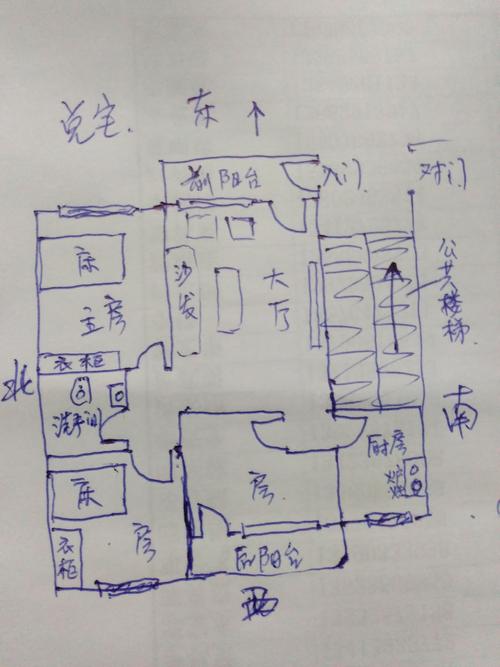 说宅.
东
前阳台
入门
对门
床
沙发
大厅
公共楼梯
主房
衣柜
北
洗手间
南
厨房
炉灶
床
房
房
衣柜
后阳台
西